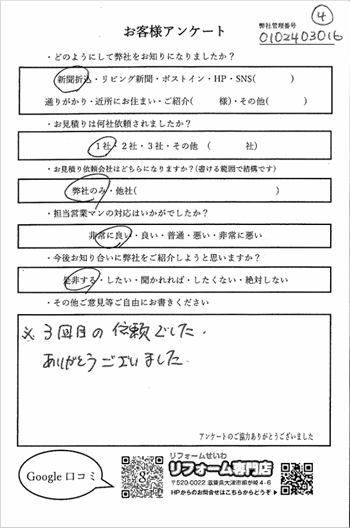 ④
お客様アンケート
弊社管理番号
0102403016
・どのようにして弊社をお知りになりましたか？
新聞折込・リビング新聞・ポストイン・HP・SNS(　　　)
通りがかり・近所にお住まい・ご紹介(　　　様)・その他(　　　)
・お見積りは何社依頼されましたか？
1社・2社・3社・その他　(　　　社)
・お見積り依頼会社はどちらになりますか？(書ける範囲で結構です)
弊社のみ・他社(　　　)
・担当営業マンの対応はいかがでしたか？
非常に良い・良い・普通・悪い・非常に悪い
・今後お知り合いに弊社をご紹介しようと思いますか？
是非する・したい・聞かれれば・したくない・絶対しない
・その他ご意見等ご自由にお書きください
※3回目の信頼でした.
ありがとうございました.
アンケートのご協力ありがとうございました
Google 口コミ
リフォームせいわ
リフォーム専門店
〒520-0022 滋賀県大津市柳が崎4-6
HPからのお問合せはこちらからどうぞ